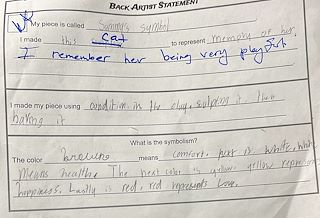 BACK ARTIST STATEMENT
My piece is called Sunny's symbol
I made this cat to represent memory of her.
I remember her being very playful.
I made my piece using condition in the clay, sculpting it, then
baking it
What is the symbolism?
The color browns means comfort. next is white, white
means healthe The next color is yellow. yellow represents
happiness. Lastly is red, red represents Love.